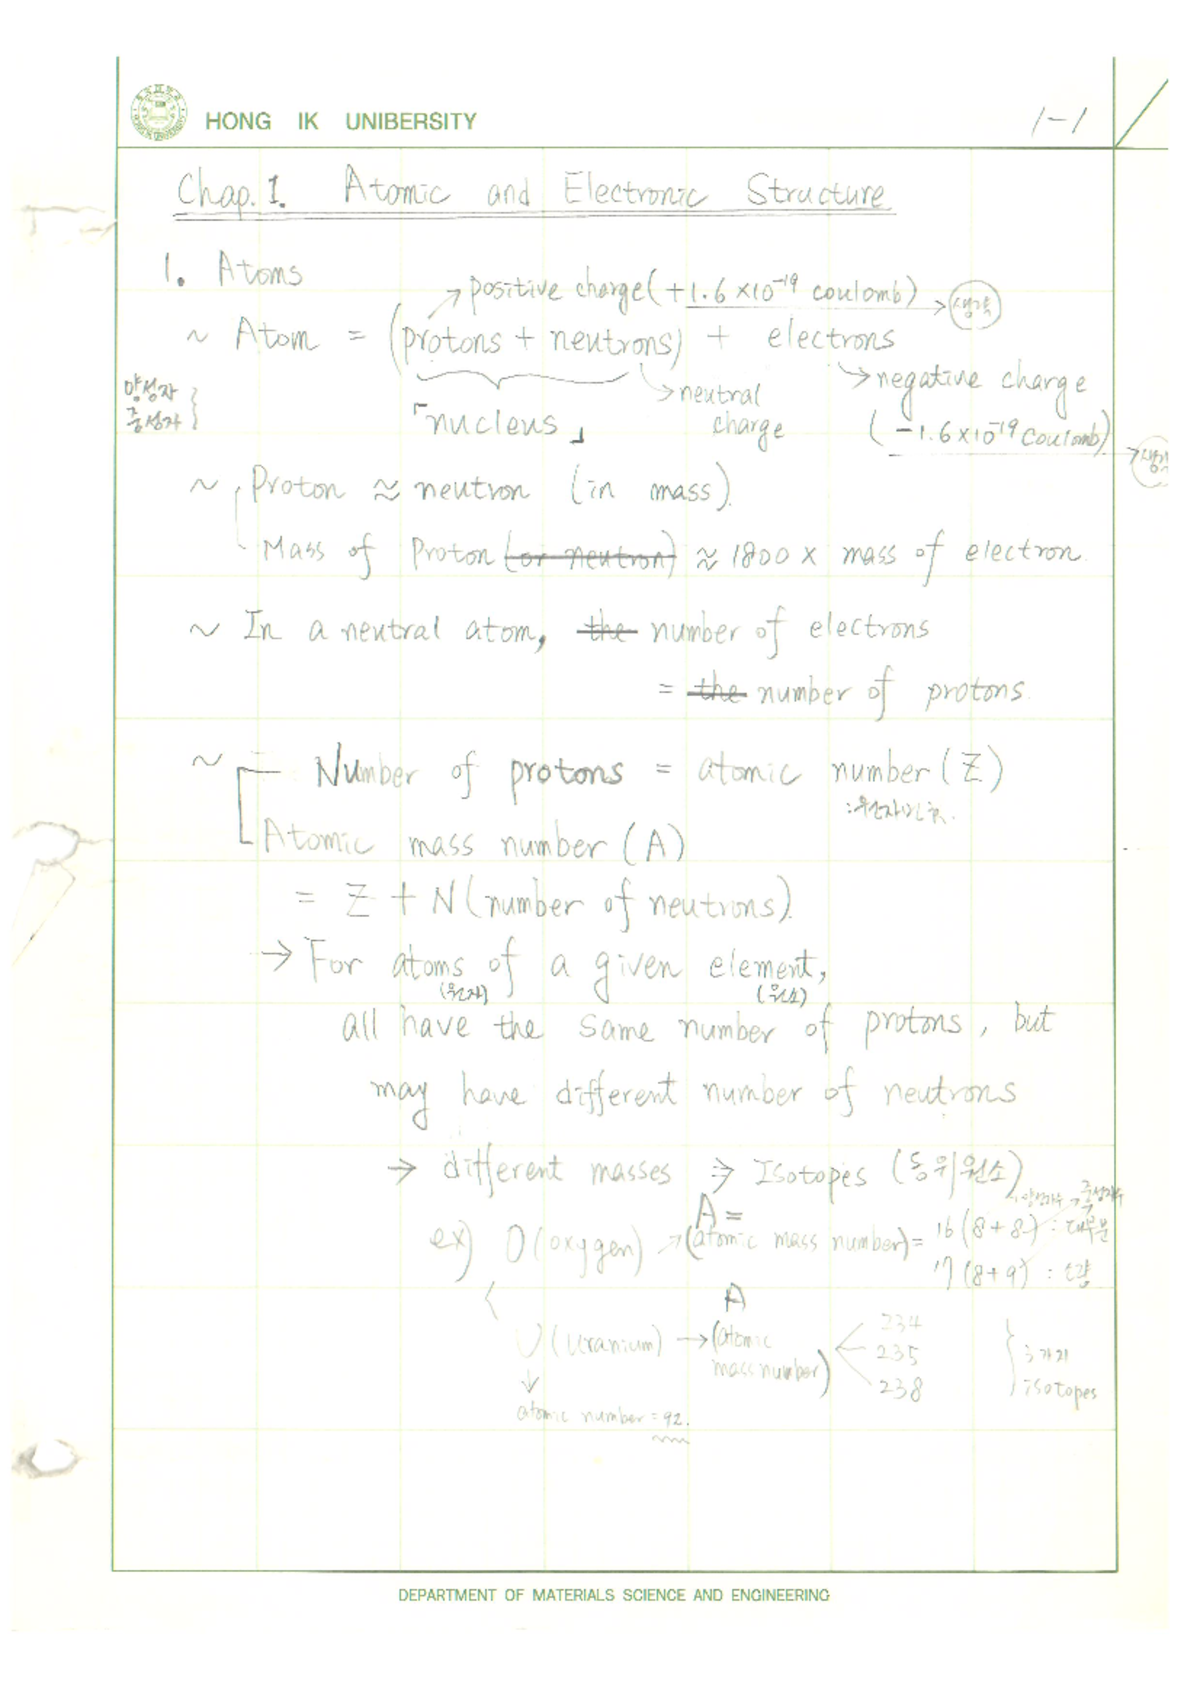 HONG IK UNIBERSITY
1-1
Chap. 1. Atomic and Electronic Structure
1. Atoms
positive charge (+1.6×10⁻¹⁹ coulomb) → 생략
~ Atom = (protons + neutrons) + electrons
양성자
중성자
→ neutral charge
→ negative charge
(-1.6×10⁻¹⁹ coulomb)
「nucleus」
~ Proton ≈ neutron (in mass).
Mass of Proton (or neutron) ≈ 1800 × mass of electron.
~ In a neutral atom, the number of electrons
= the number of protons.
~ Number of protons = atomic number (Z)
: 원자번호.
Atomic mass number (A)
= Z + N (number of neutrons).
→ For atoms of a given element,
(원자) (원소)
all have the same number of protons, but
may have different number of neutrons
→ different masses ⇒ Isotopes (동위원소)
양성자수 중성자수
A =
ex) O (oxygen) → (atomic mass number) = 16 (8+8) : 대부분
17 (8+9) : 소량
A
U (Uranium) → (atomic mass number)
234
235
238
3가지
isotopes
atomic number = 92.
DEPARTMENT OF MATERIALS SCIENCE AND ENGINEERING